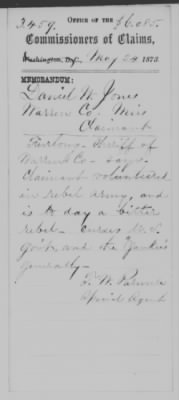 3.459. OFFICE OF THE $6.085.
Commissioners of Claims,
Washington, D.C., May 24 1873.
MEMORANDUM:
Daniel W. Jones
Warren Co. Miss
Claimant
Furlong – Sheriff of
Warren Co – says
Claimant volunteered
in rebel army, and
is to day a bitter
rebel – curses U.S.
Govt. and the Yankees
generally –
Special Agent